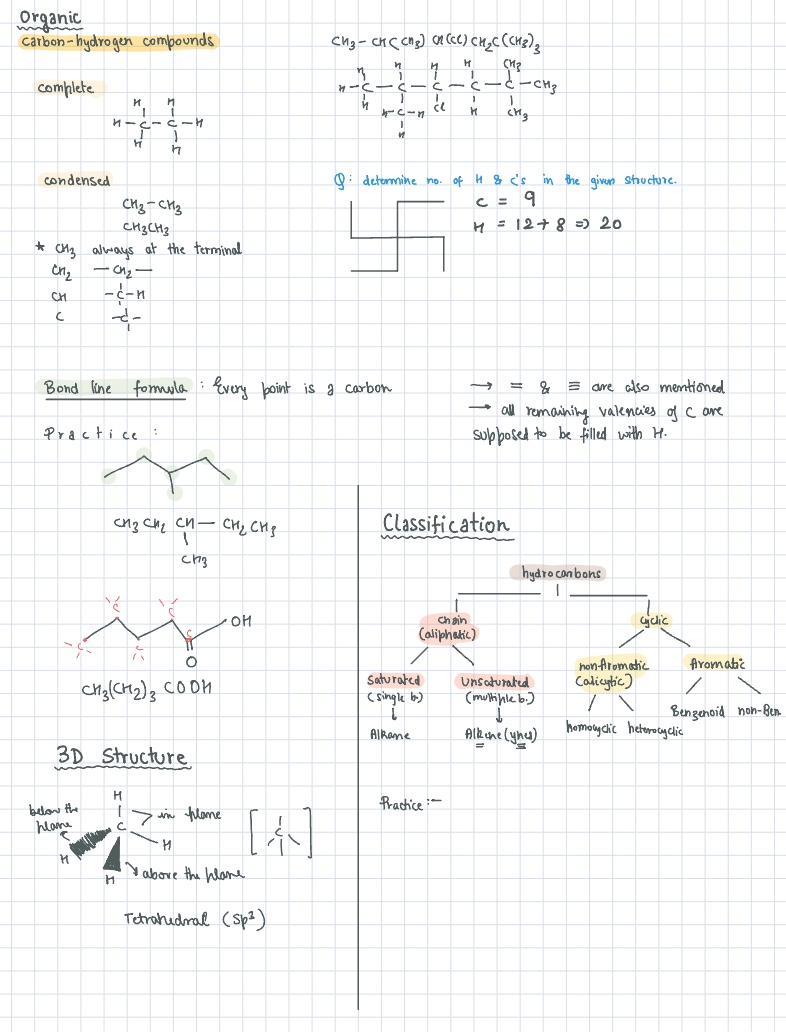 Organic
carbon-hydrogen compounds
complete
H H
H-C-C-H
H H
condensed
CH3-CH3
CH3CH3
* CH3 always at the terminal
CH2 —CH2—
CH -C-H
C -C-
CH3-CH(CH3)CH(Cl)CH2C(CH3)3
H H H H CH3
H-C-C-C-C-C-CH3
H H-C-H Cl H CH3
H
Q: determine no. of H & C's in the given structure.
C = 9
H = 12+8 => 20
Bond line formula : Every point is a carbon
→ = & ≡ are also mentioned
→ all remaining valencies of C are
supposed to be filled with H.
Practice :
CH3 CH2 CH— CH2 CH3
CH3
C C
C C C OH
O
CH3(CH2)3 COOH
3D Structure
H
below the
plane
C
in plane
H
H
H
above the plane
C
Tetrahedral (Sp3)
Classification
hydrocarbons
Chain
(aliphatic)
cyclic
Saturated
(single b.)
Alkane
Unsaturated
(multiple b.)
Alkene (ynes)
non-Aromatic
(alicyclic)
homocyclic heterocyclic
Aromatic
Benzenoid non-Ben
Practice :-